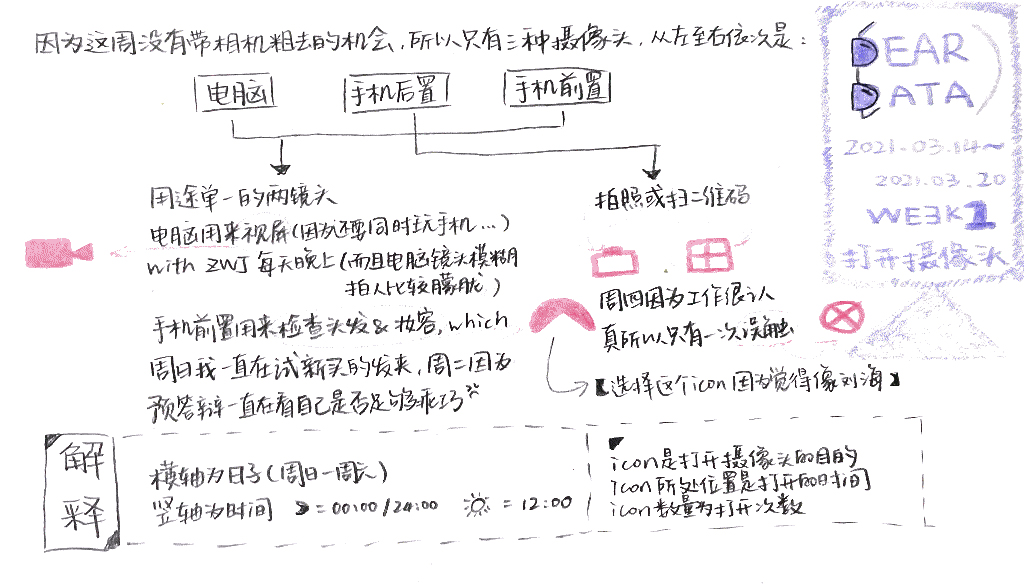 因为这周没有带相机粗去的机会，所以只有三种摄像头，从左至右依次是：
电脑
手机后置
手机前置
DEAR
DATA
2021.03.14～
2021.03.20
WE3K1
打开摄像头
用途单一的两镜头
电脑用来视屏(因为还要同时玩手机...)
with ZWJ 每天晚上(而且电脑镜头模糊
拍人比较朦胧)
手机前置用来检查头发&妆容, which
周日我一直在试新买的发夹, 周二因为
预答辩一直在看自己是否足够乖巧
拍照或扫二维码
周四因为工作很认
真所以只有一次误触
【选择这个icon因为觉得像刘海】
解
释
横轴为日子(周日—周六)
竖轴为时间 = 00:00/24:00 = 12:00
icon是打开摄像头的目的
icon所处位置是打开的时间
icon数量为打开次数